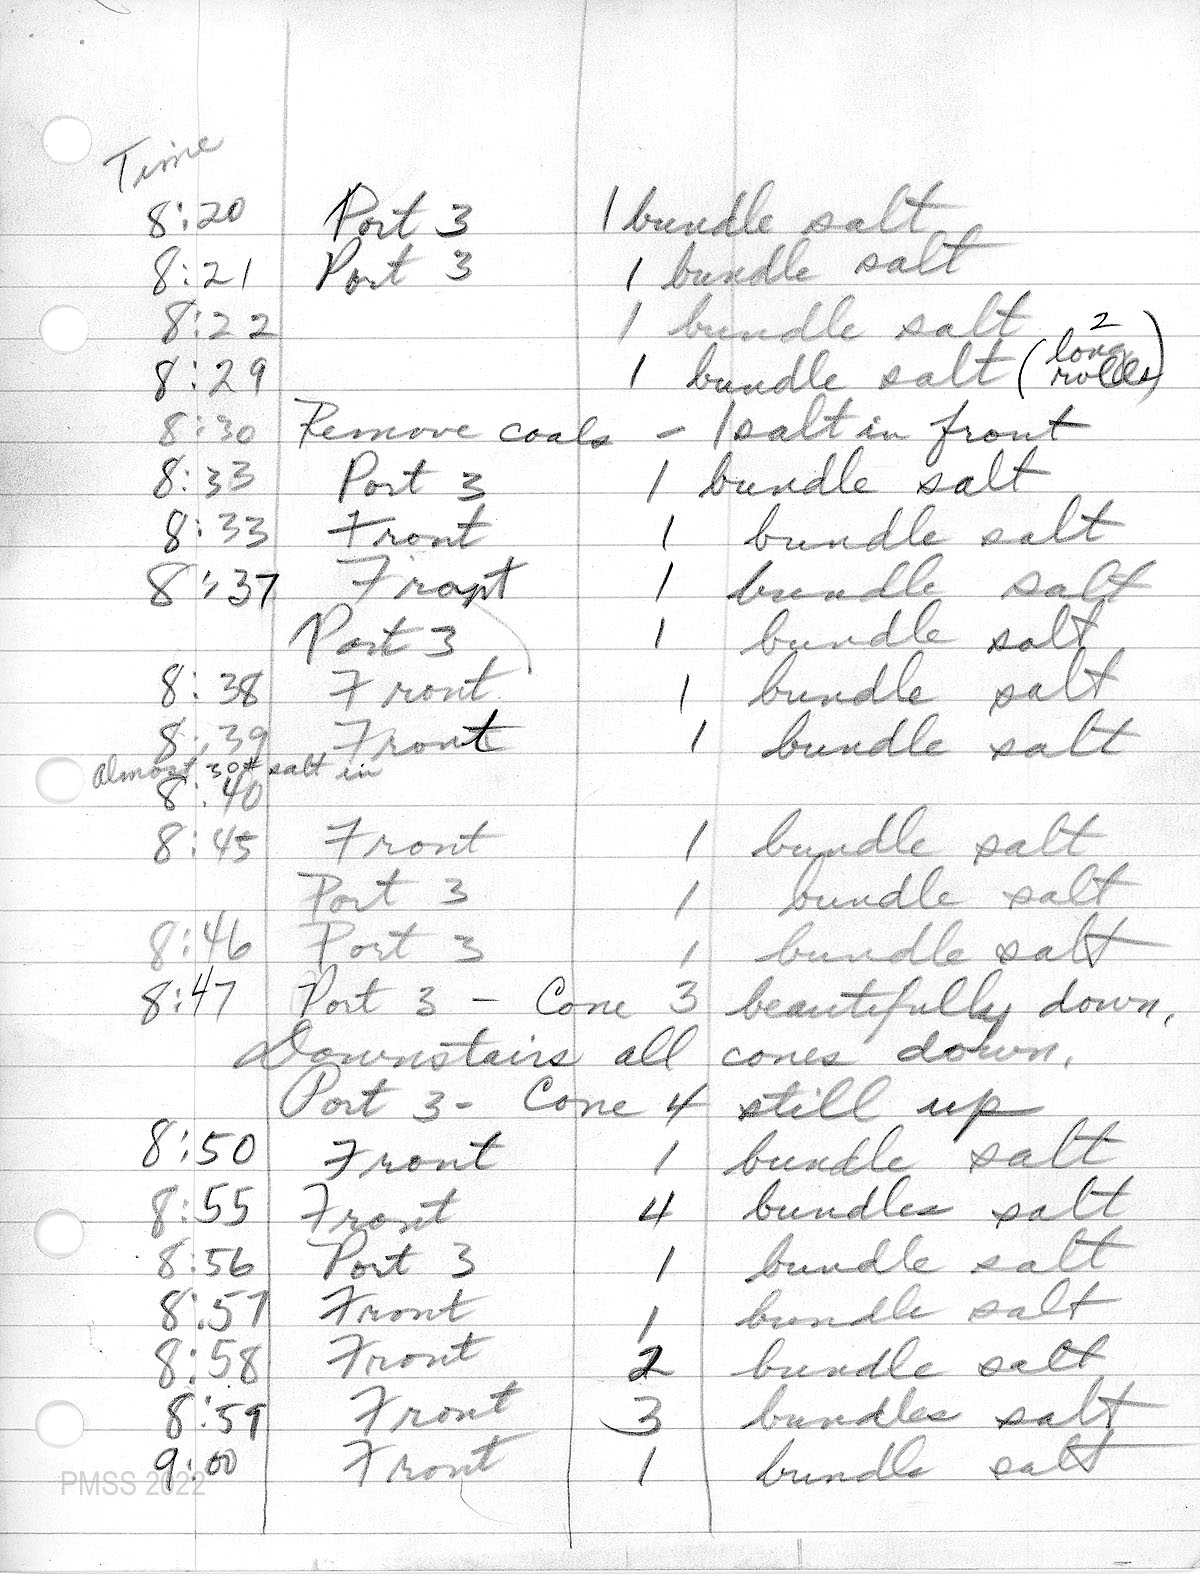 Time
8:20 Port 3 1 bundle salt
8:21 Port 3 1 bundle salt
8:22 1 bundle salt
8:29 1 bundle salt (2 long rolls)
8:30 Remove coals - 1 salt in front
8:33 Port 3 1 bundle salt
8:33 Front 1 bundle salt
8:37 Front 1 bundle salt
Port 3 1 bundle salt
8:38 Front 1 bundle salt
8:39 Front 1 bundle salt
Almost 30# salt in
8:40
8:45 Front 1 bundle salt
Port 3 1 bundle salt
8:46 Port 3 1 bundle salt
8:47 Port 3 - Cone 3 beautifully down,
Downstairs all cones down.
Port 3 - Cone 4 still up
8:50 Front 1 bundle salt
8:55 Front 4 bundles salt
8:56 Port 3 1 bundle salt
8:57 Front 1 bundle salt
8:58 Front 2 bundle salt
8:59 Front 3 bundles salt
9:00 Front 1 bundle salt
PMSS 2022